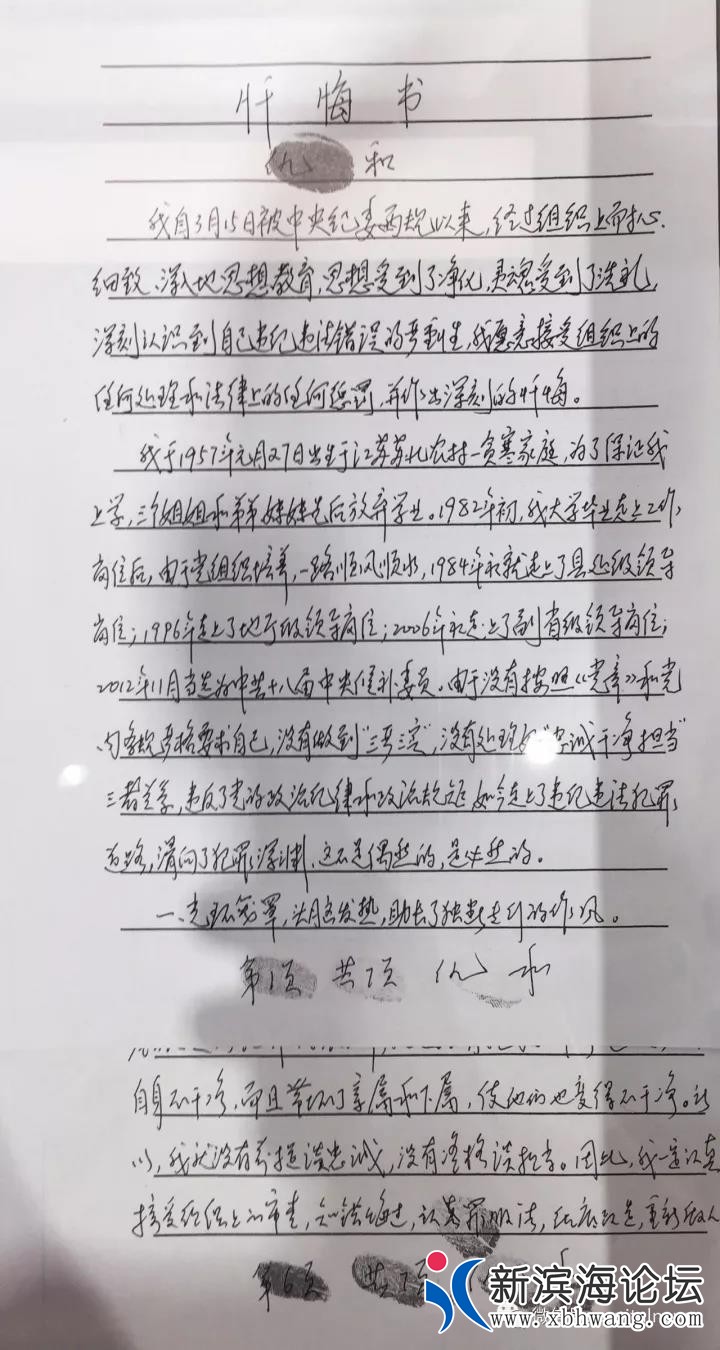 忏悔书
仇和
我自3月15日被中央纪委两规以来,经过组织上而耐心、
细致、深入地思想教育,思想受到了净化,灵魂受到了洗礼,
深刻认识到自己违纪违法错误的严重性,我愿意接受组织上的
任何处理和法律上的任何惩罚,并作出深刻的忏悔。
我于1957年元月27日出生于江苏苏北农村一贫寒家庭,为了保证我
上学,三个姐姐和弟弟妹妹先后放弃学业。1982年初,我大学毕业走上工作
岗位后,由于党组织培养,一路顺风顺水,1984年就走上了县处级领导
岗位;1996年走上了地厅级领导岗位;2006年走上了副省级领导岗位;
2012年11月当选为中共十八届中央候补委员。由于没有按照《党章》和党
内条规严格要求自己,没有做到“三严三实”,没有处理好“忠诚干净担当”
三者关系,违反了党的政治纪律和政治规矩,如今走上了违纪违法犯罪
道路,滑向了犯罪深渊,这不是偶然的,是必然的。
一、光环笼罩,头脑发热,助长了独断专行的作风。
第1页 共7页 仇和
自身不干净,而且带坏了亲属和下属,使他们也变得不干净。所
以,我就没有前提谈忠诚,没有资格谈担当。因此,我一定认真
接受组织上的审查,知错悔过,认罪服法,彻底改造,重新做人
第6页 共7页
新滨海论坛
www.xbhwang.com